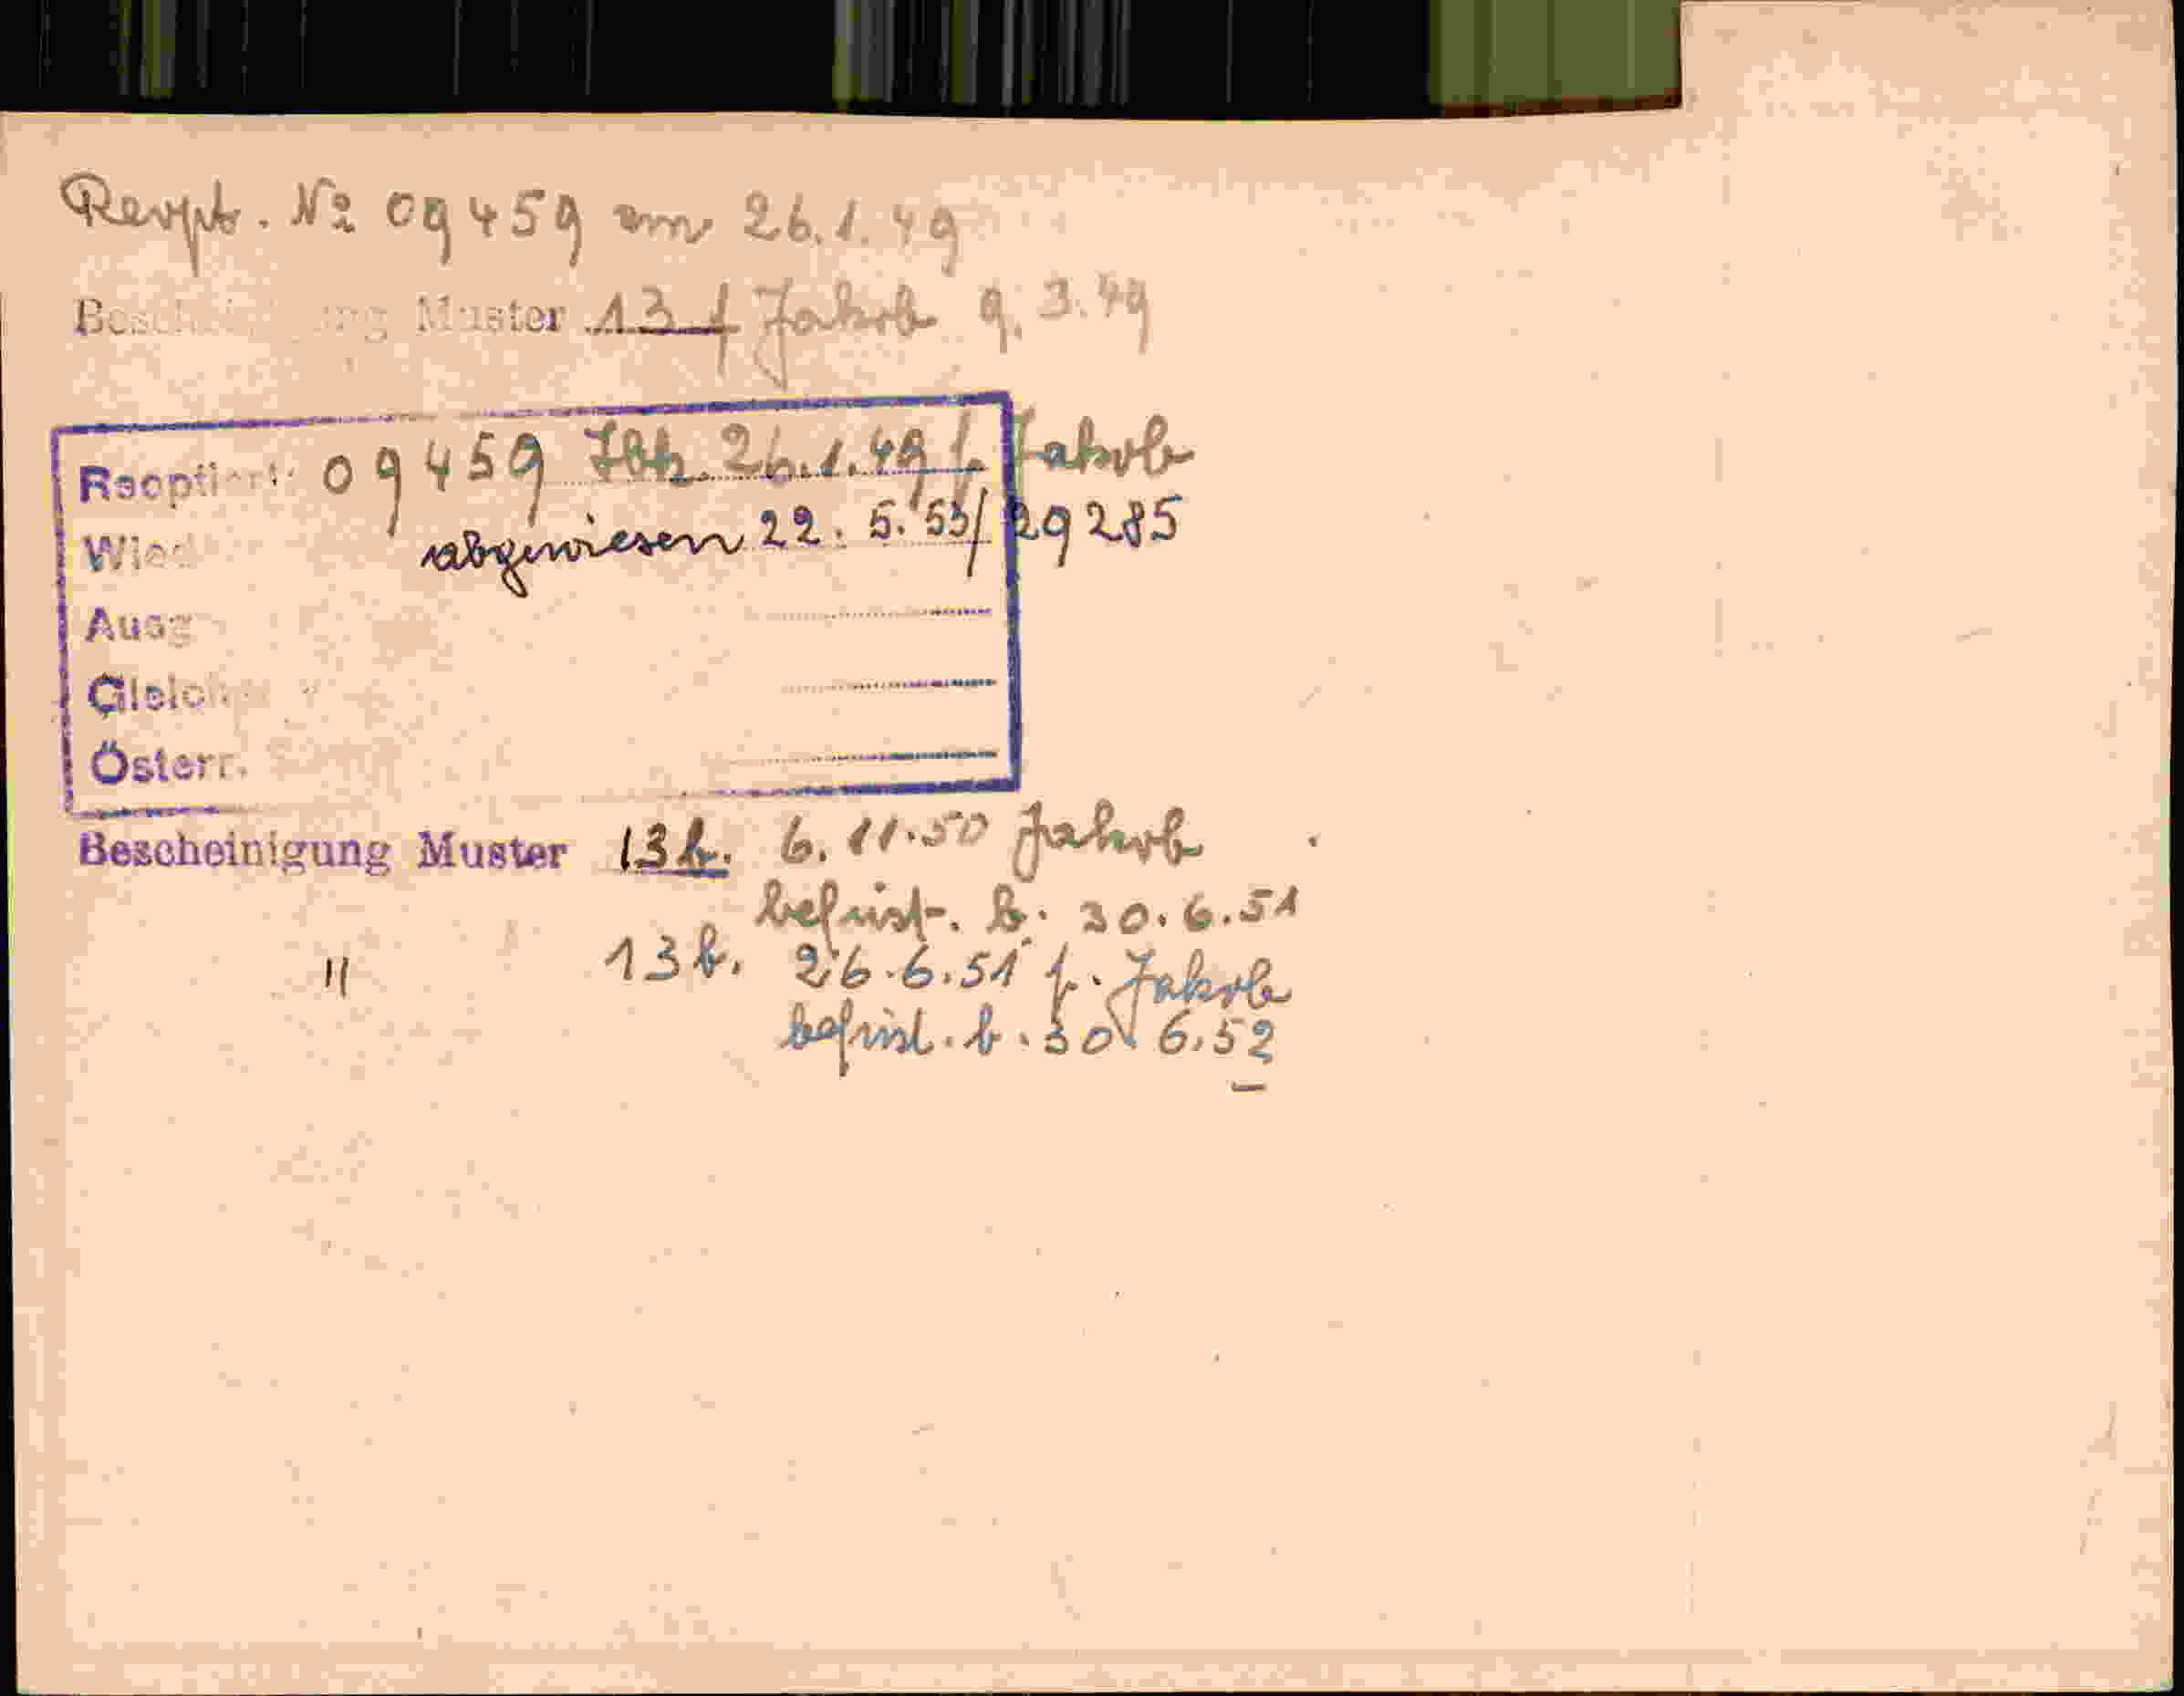 Reopt. № 09459 am 26.1.49
Muster 13 f Jakob 9.3.49
Reoptiert: 09459 26.1.49 f. Jakob
Wied abgewiesen 22. 5. 53/29285
Ausg
Gleich
Österr.
Bescheinigung Muster 13b. 6.11.50 Jakob
befrist. b. 30.6.51
" 13b. 26.6.51 f. Jakob
befrist. b. 30.6.52